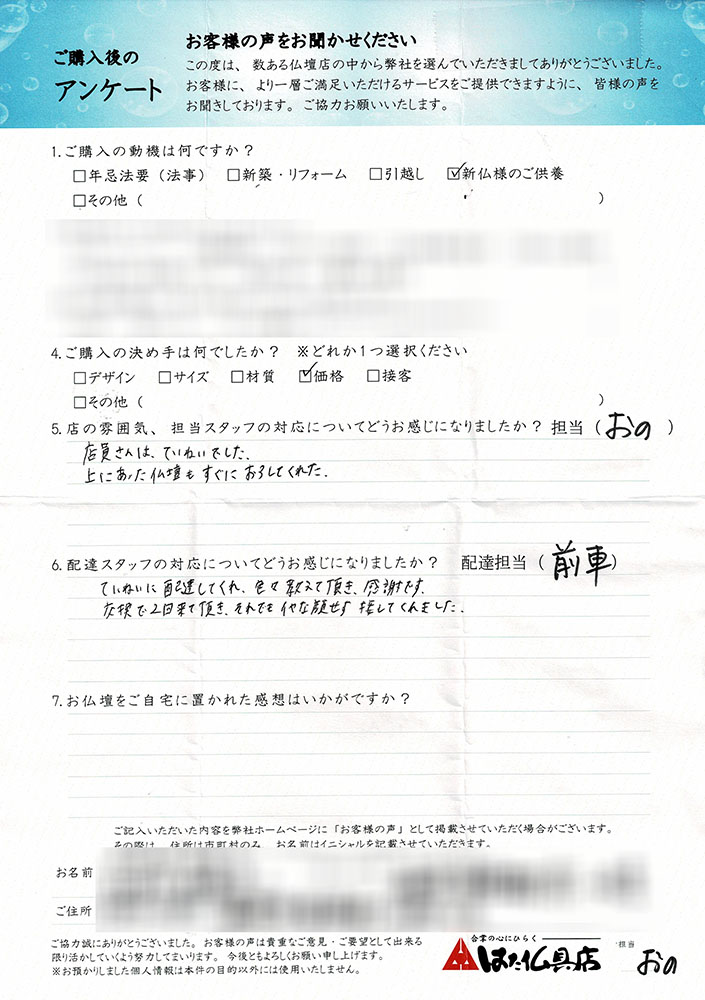 ご購入後の
アンケート
お客様の声をお聞かせください
この度は、数ある仏壇店の中から弊社を選んでいただきましてありがとうございました。
お客様に、より一層ご満足いただけるサービスをご提供できますように、皆様の声を
お聞きしております。ご協力お願いいたします。
1.ご購入の動機は何ですか?
□年忌法要(法事) □新築・リフォーム □引越し ☑新仏様のご供養
□その他( )
4.ご購入の決め手は何でしたか? ※どれか1つ選択ください
□デザイン □サイズ □材質 ☑価格 □接客
□その他( )
5.店の雰囲気、担当スタッフの対応についてどうお感じになりましたか?担当(おの)
店員さんは、ていねいでした。
上にあった仏壇もすぐにおろしてくれた。
6.配達スタッフの対応についてどうお感じになりましたか? 配達担当(前車)
ていねいに配達してくれ、色々教えて頂き、感謝です。
交換で2回来て頂き、それでもイヤな顔せず接してくれました。
7.お仏壇をご自宅に置かれた感想はいかがですか?
ご記入いただいた内容を弊社ホームページに「お客様の声」として掲載させていただく場合がございます。
その際は、住所は市町村のみ、お名前はイニシャルを記載させていただきます。
お名前
ご住所
ご協力誠にありがとうございました。お客様の声は貴重なご意見・ご要望として出来る
限り活かしていくよう努力してまいります。今後ともよろしくお願い申し上げます。
※お預かりしました個人情報は本件の目的以外には使用いたしません。
合掌の心にひらく
はた仏具店
担当
おの